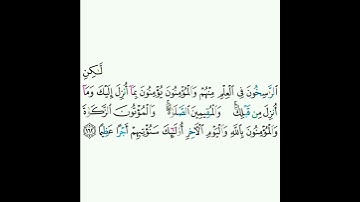 لَّٰكِنِ
ٱلرَّٰسِخُونَ فِي ٱلْعِلْمِ مِنْهُمْ وَٱلْمُؤْمِنُونَ يُؤْمِنُونَ بِمَآ أُنزِلَ إِلَيْكَ وَمَآ
أُنزِلَ مِن قَبْلِكَۚ وَٱلْمُقِيمِينَ ٱلصَّلَوٰةَۚ وَٱلْمُؤْتُونَ ٱلزَّكَوٰةَ
وَٱلْمُؤْمِنُونَ بِٱللَّهِ وَٱلْيَوْمِ ٱلْءَاخِرِ أُوْلَٰٓئِكَ سَنُؤْتِيهِمْ أَجْرًا عَظِيمًا ١٦٢